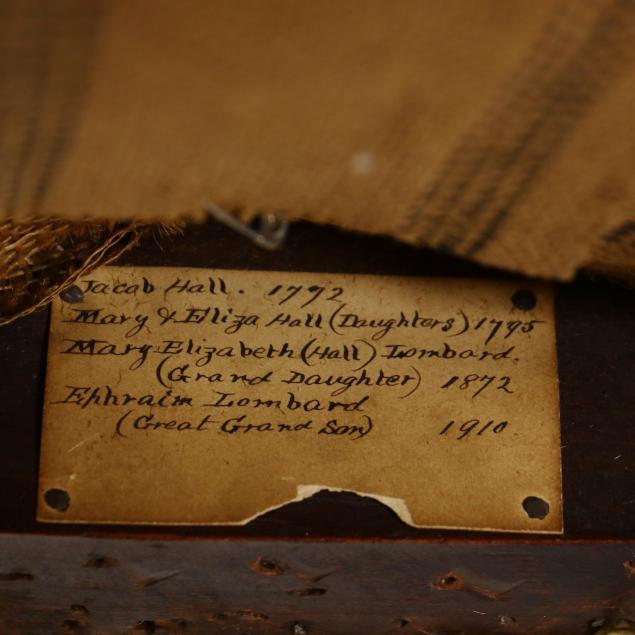 Jacob Hall. 1772
Mary & Eliza Hall (Daughters) 1795
Mary Elizabeth (Hall) Lombard.
(Grand Daughter) 1872
Ephraim Lombard
(Great Grand Son) 1910